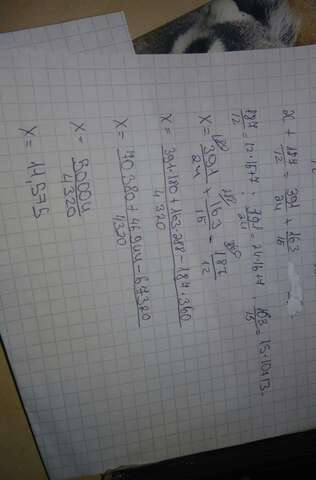 x + 187/12 = 391/24 + 163/15
187/12 = 12·16+7 ; 391/24 = 24·16+7 163/15 = 15·10+13.
x = 391/24 + 163/15 = 187/12
x = 391·180 + 163·288 - 187·360 / 4320
x = 70 380 + 46 944 - 67320 / 4320
x = 50004 / 4320
x = 11,575